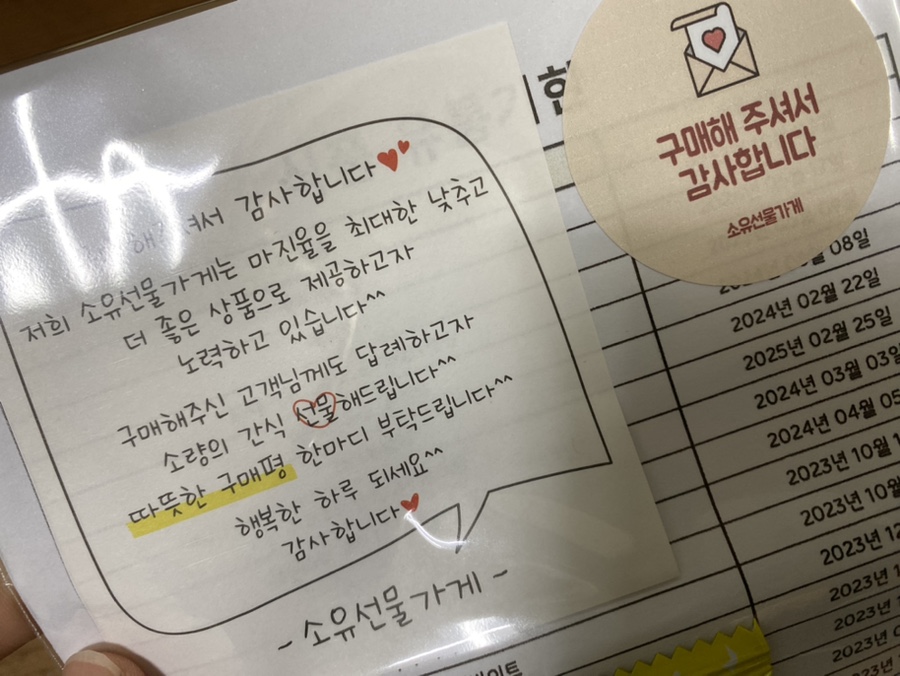 감사합니다
저희 소유선물가게는 마진율을 최대한 낮추고
더 좋은 상품으로 제공하고자
노력하고 있습니다^^
구매해주신 고객님께도 답례하고자
소량의 간식 선물해드립니다^^
따뜻한 구매평 한마디 부탁드립니다^^
행복한 하루 되세요^^
감사합니다
-소유선물가게-
구매해 주셔서
감사합니다
소유선물가게
08일
2024년 02월 22일
2025년 02월 25일
2024년 03월 03일
2024년 04월 05
2023년 10월 1
2023년 10월
2023년 12
2023년 1
2023년 1
2023년 0
2023년